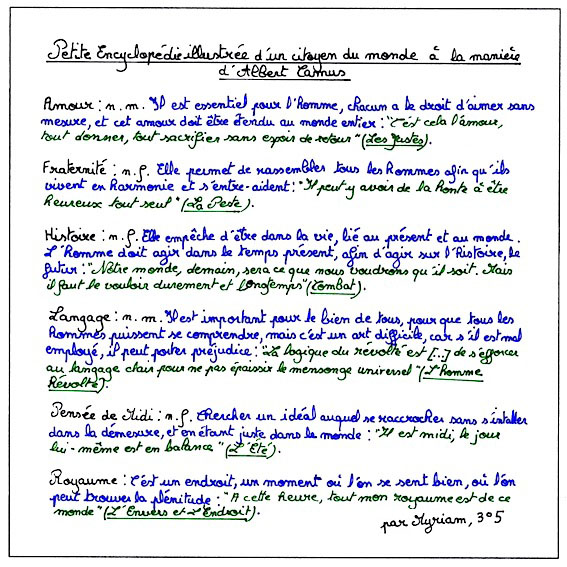 Petite Encyclopédie illustrée d'un citoyen du monde à la manière
d'Albert Camus
Amour : n.m. Il est essentiel pour l'Homme, chacun a le droit d'aimer sans
mesure, et cet amour doit être étendu au monde entier : "C'est cela l'amour,
tout donner, tout sacrifier sans espoir de retour" (Les Justes).
Fraternité : n.f. Elle permet de rassembler tous les Hommes afin qu'ils
vivent en harmonie et s'entre-aident : "Il peut y avoir de la honte à être
heureux tout seul" (La Peste).
Histoire : n.f. Elle empêche d'être dans la vie, lié au présent et au monde.
L'Homme doit agir dans le temps présent, afin d'agir sur l'Histoire, le
futur : "Notre monde, demain, sera ce que nous voudrons qu'il soit. Mais
il faut le vouloir durement et longtemps" (Combat).
Langage : n.m. Il est important pour le bien de tous, pour que tous les
Hommes puissent se comprendre, mais c'est un art difficile, car s'il est mal
employé, il peut porter préjudice : "La logique du révolté est [...] de s'efforcer
au langage clair pour ne pas épaissir le mensonge universel" (L'Homme
Révolté).
Pensée de Midi : n.f. Chercher un idéal auquel se raccrocher sans s'installer
dans la démesure, et en étant juste dans le monde : "Il est midi, le jour
lui-même est en balance" (L'Été).
Royaume : C'est un endroit, un moment où l'on se sent bien, où l'on
peut trouver la plénitude : "A cette heure, tout mon royaume est de ce
monde" (L'Envers et L'Endroit).
par Myriam, 3°5